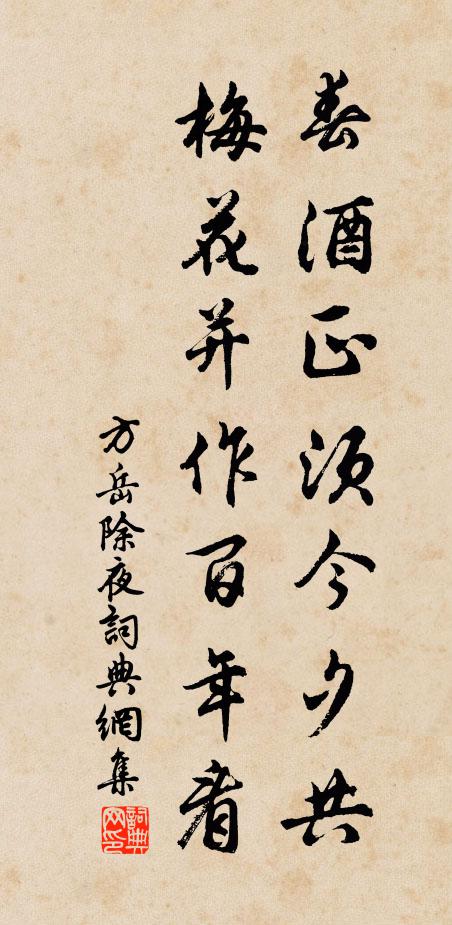 春酒正须今夕共
梅花并作百年看
方岳除夜詞典網集
詞典
网印